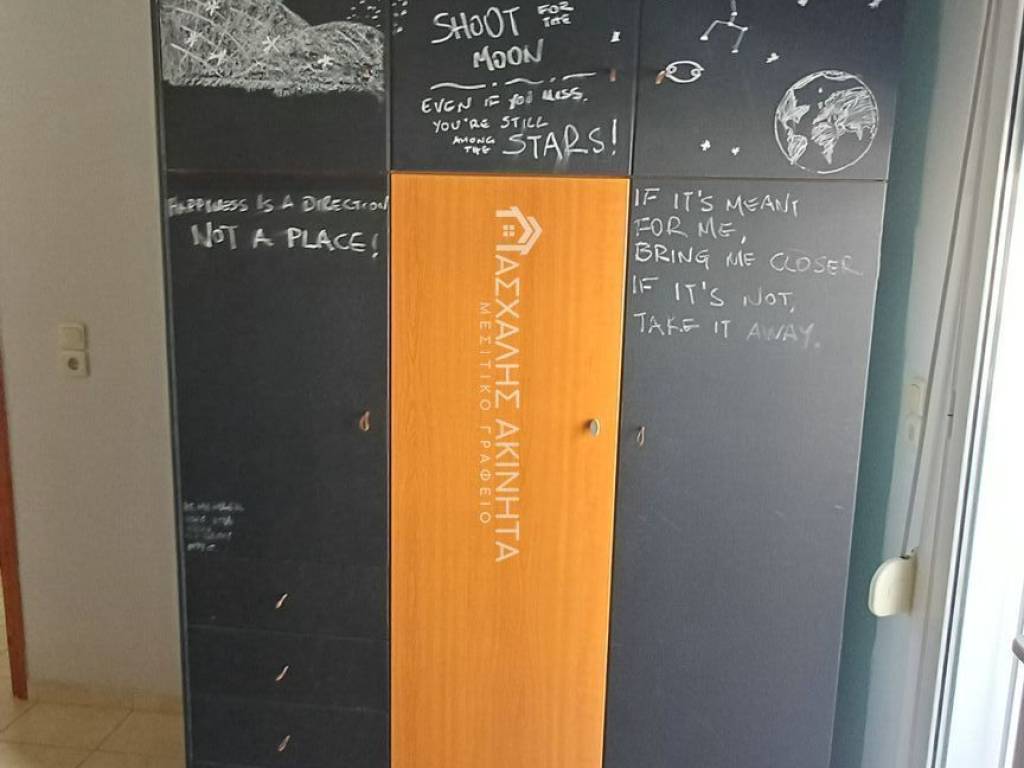 SHOOT FOR THE
MOON
EVEN IF YOU MISS,
YOU'RE STILL
AMONG THE STARS!
HAPPINESS IS A DIRECTION
NOT A PLACE!
IF IT'S MEANT
FOR ME,
BRING ME CLOSER
IF IT'S NOT,
TAKE IT AWAY.
ΠΑΣΧΑΛΗΣ ΑΚΙΝΗΤΑ
ΜΕΣΙΤΙΚΟ ΓΡΑΦΕΙΟ